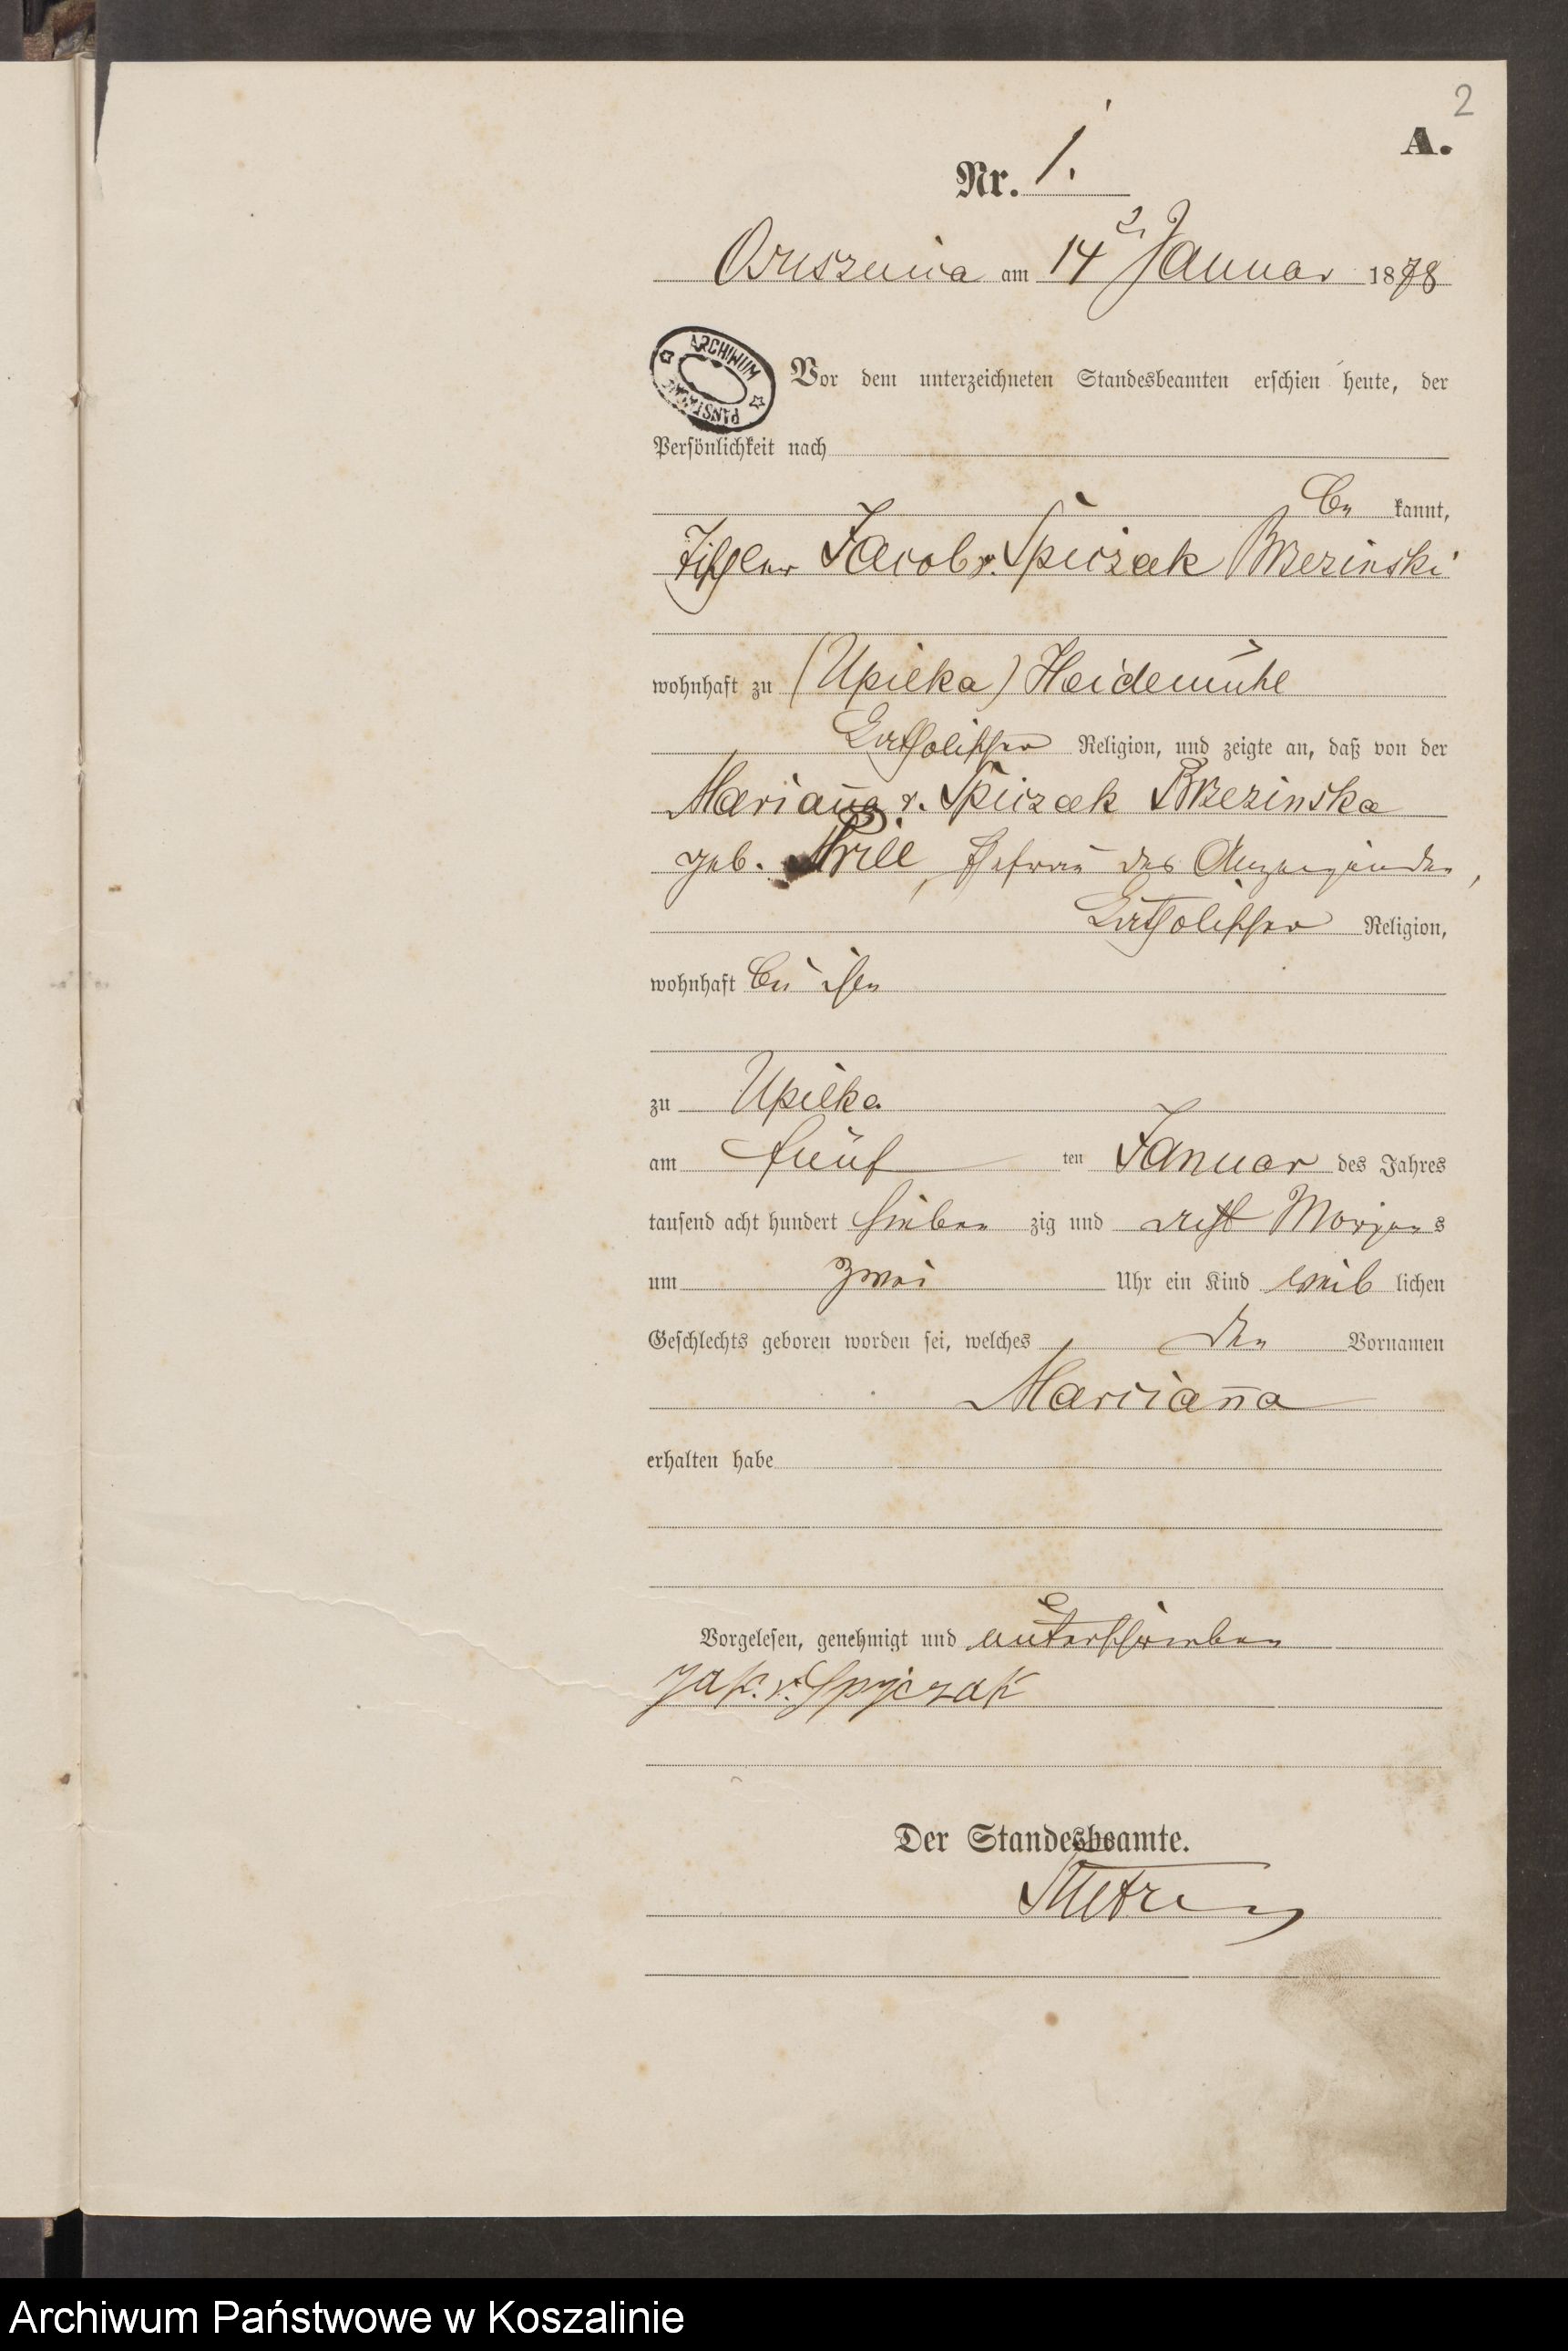 2
A.
Nr. 1.
am 14 Januar 1878
ARCHIWUM
PAŃSTWOWE
Vor dem unterzeichneten Standesbeamten erschien heute, der
Persönlichkeit nach
be kannt,
Tischler Jacob v. Spiczak Brzezinski
wohnhaft zu (Upilka) Heidemühle
katholischer Religion, und zeigte an, daß von der
Marianna v. Spiczak Brzezinska
geb. Prill, Ehefrau des Anzeigenden,
katholischer Religion,
wohnhaft bei ihm
zu Upilka
am fünf ten Januar des Jahres
tausend acht hundert sieben zig und acht Morgens
um zwei Uhr ein Kind weib lichen
Geschlechts geboren worden sei, welches den Vornamen
Marianna
erhalten habe
Vorgelesen, genehmigt und unterschrieben
Jak. v. Spyczak
Der Standesbeamte.
Archiwum Państwowe w Koszalinie